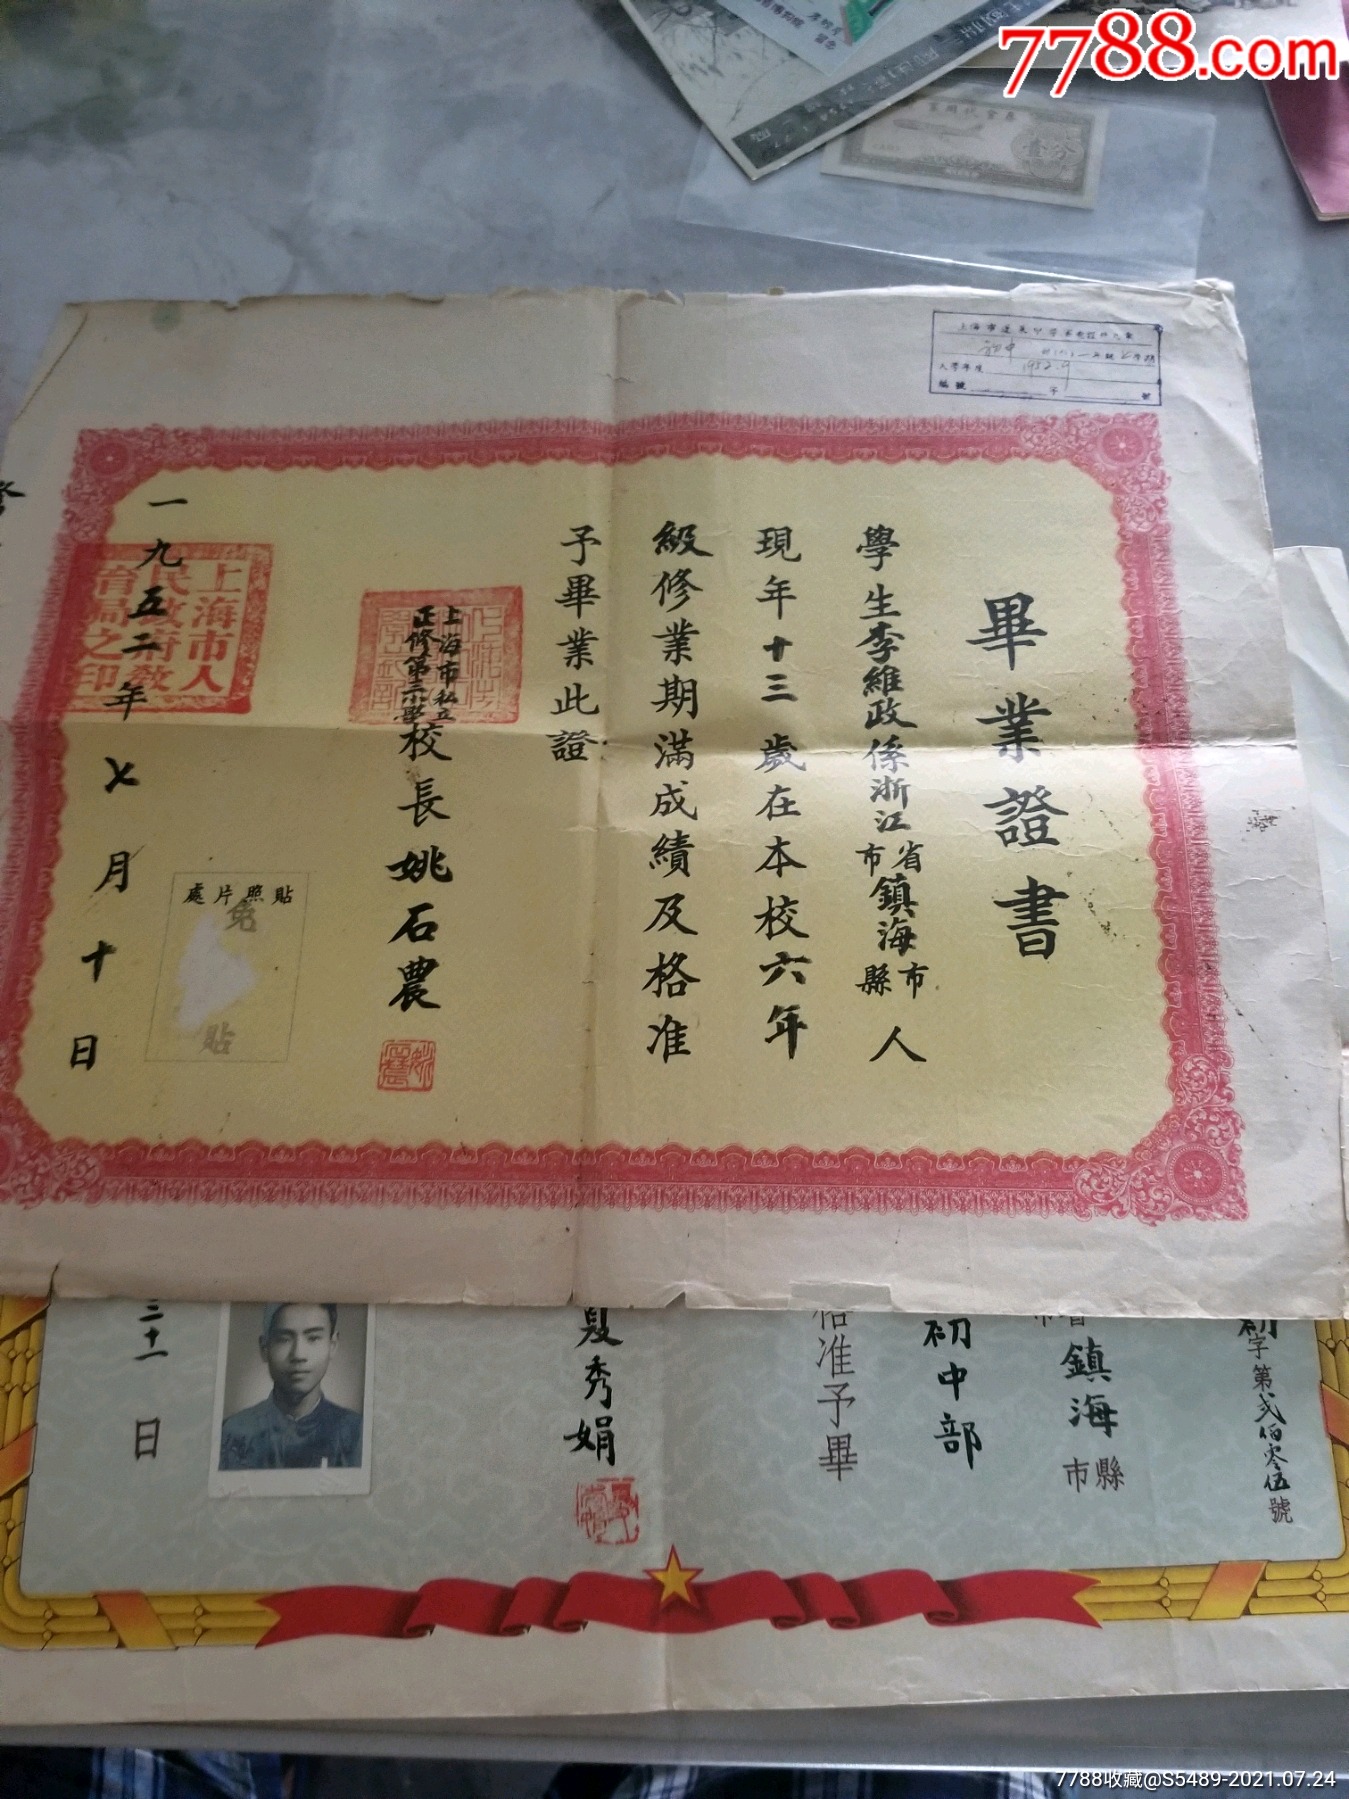 7788.com
壹分
初中
入學年度 1952.9
編號 字 號
畢業證書
學生李維政係浙江省市鎮海市縣人
現年十三歲在本校六年
級修業期滿成績及格准
予畢業此證
上海市私立
正修第三小學
校長姚石農
貼照片處
免貼
一九五二年七月十日
上海市人民政府教育局之印
初字第貳佰零伍號
鎮海
市縣
初中部
准予畢
夏秀娟
三十一日
7788收藏@S5489-2021.07.24